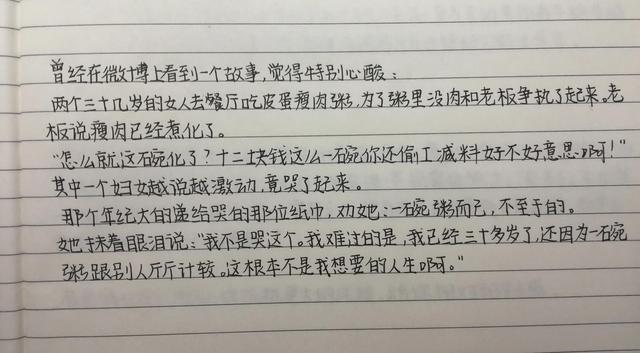 曾经在微博上看到一个故事,觉得特别心酸:
两个三十几岁的女人去餐厅吃皮蛋瘦肉粥,为了粥里没肉和老板争执了起来。老
板说瘦肉已经煮化了。
“怎么就这碗化了?十二块钱这么一碗你还偷工减料好不好意思啊!”
其中一个妇女越说越激动,竟哭了起来。
那个年纪大的递给哭的那位纸巾,劝她:一碗粥而已,不至于的。
她抹着眼泪说:“我不是哭这个。我难过的是,我已经三十多岁了,还因为一碗
粥跟别人斤斤计较。这根本不是我想要的人生啊。”